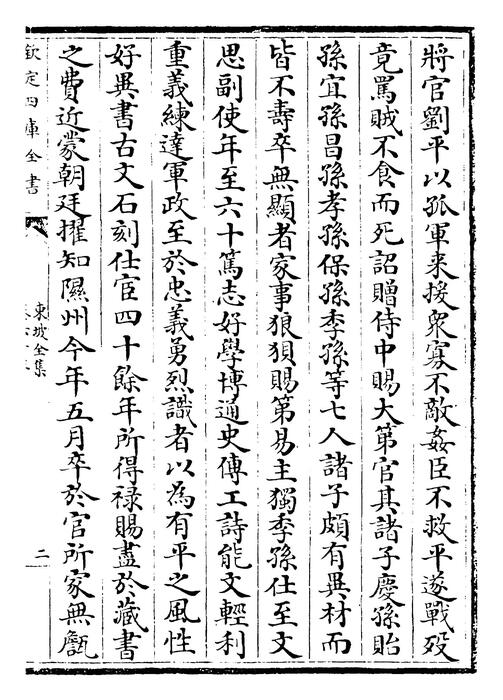 將官劉平以孤軍来援衆寡不敵姦臣不救平遂戰殁
竟罵賊不食而死詔贈侍中賜大第官其諸子慶孫貽
孫宜孫昌孫孝孫保孫季孫等七人諸子頗有異材而
皆不壽卒無顯者家事狼狽賜第易主獨季孫仕至文
思副使年至六十篤志好學博通史傳工詩能文輕利
重義練達軍政至於忠義勇烈識者以為有平之風性
好異書古文石刻仕宦四十餘年所得禄賜盡於藏書
之費近蒙朝廷擢知隰州今年五月卒於官所家無甔
欽定四庫全書
東坡全集
二